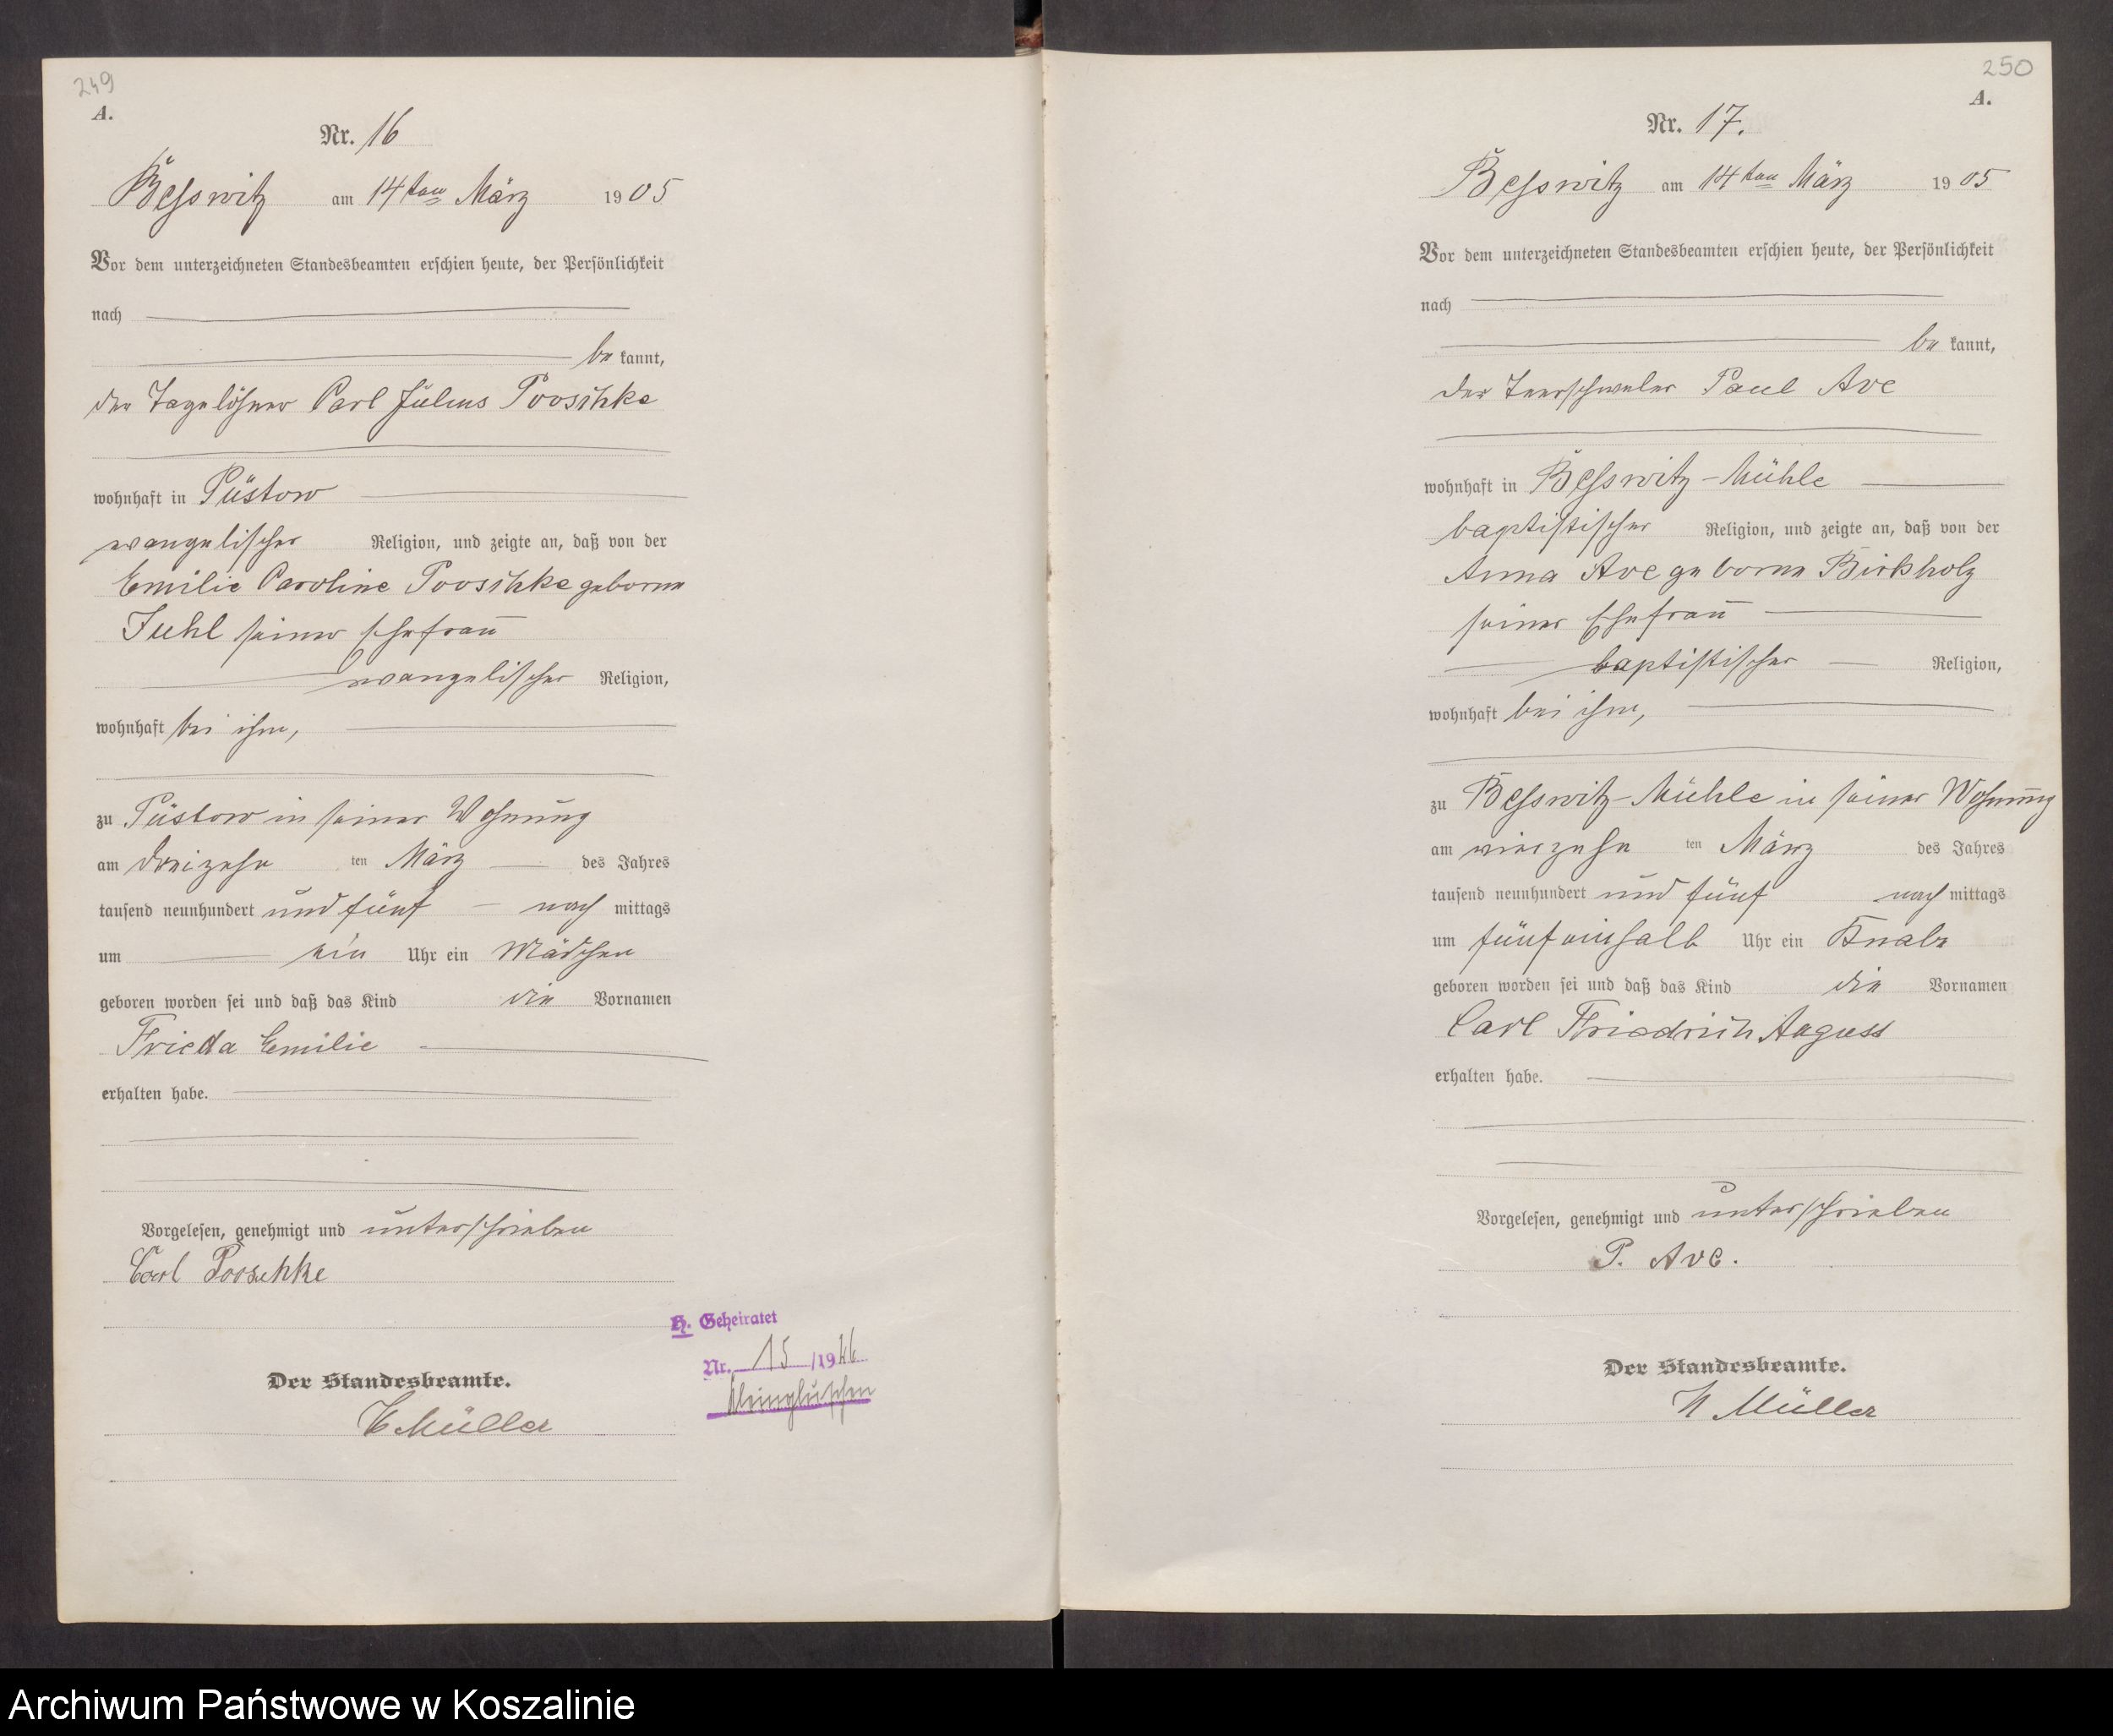 249
A.
Nr. 16
Besswitz am 14ten März 1905
Vor dem unterzeichneten Standesbeamten erschien heute, der Persönlichkeit
nach
bekannt,
der Tagelöhner Carl Julius Pooschke
wohnhaft in Püstow
evangelischer Religion, und zeigte an, daß von der
Emilie Caroline Pooschke geborne
Juhl seiner Ehefrau
evangelischer Religion,
wohnhaft bei ihm,
zu Püstow in seiner Wohnung
am dreizehn ten März des Jahres
tausend neunhundert und fünf nach mittags
um ein Uhr ein Mädchen
geboren worden sei und daß das Kind die Vornamen
Frieda Emilie
erhalten habe.
Vorgelesen, genehmigt und unterschrieben
Carl Pooschke
Der Standesbeamte.
Müller
H. Geheiratet
Nr. 15 /1926
250
A.
Nr. 17.
Besswitz am 14ten März 1905
Vor dem unterzeichneten Standesbeamten erschien heute, der Persönlichkeit
nach
bekannt,
der Paul Ave
wohnhaft in Besswitz-Mühle
baptistischer Religion, und zeigte an, daß von der
Anna Ave geborne Birkholz
seiner Ehefrau
baptistischer Religion,
wohnhaft bei ihm,
zu Besswitz-Mühle in seiner Wohnung
am vierzehn ten März des Jahres
tausend neunhundert und fünf nach mittags
um fünfeinhalb Uhr ein Knabe
geboren worden sei und daß das Kind die Vornamen
Carl Friedrich August
erhalten habe.
Vorgelesen, genehmigt und unterschrieben
P. Ave.
Der Standesbeamte.
Müller
Archiwum Państwowe w Koszalinie